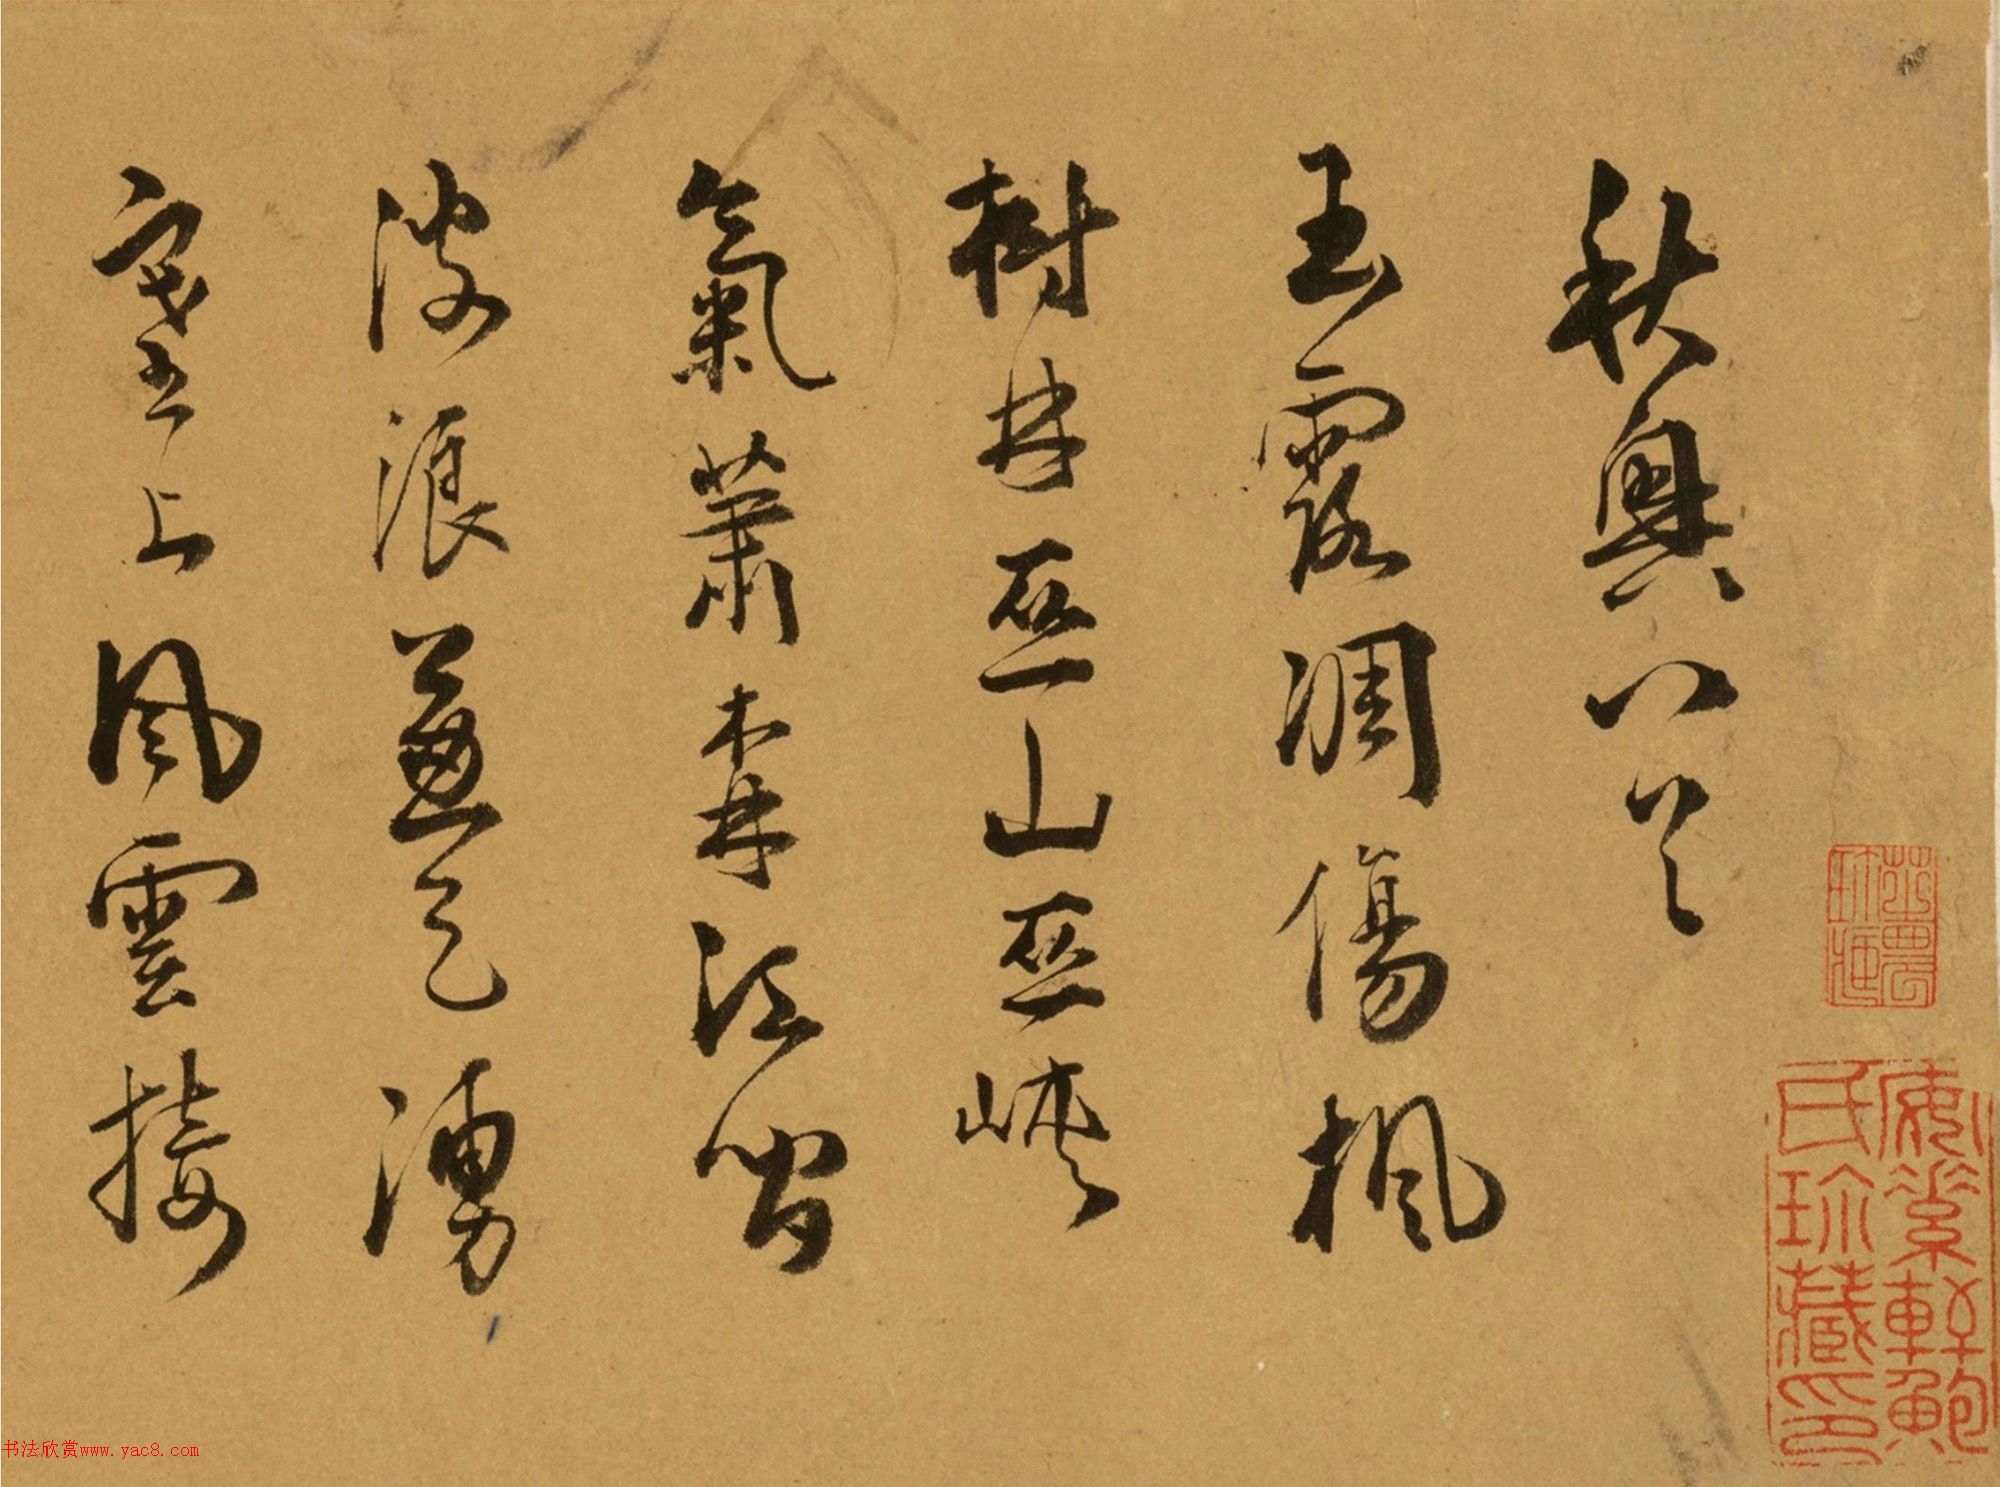 秋興八首
玉露凋傷楓
樹林巫山巫峽
氣蕭森江間
波浪兼天湧
塞上風雲接
素軒鮑
氏珍藏印
书法欣赏www.yac8.com